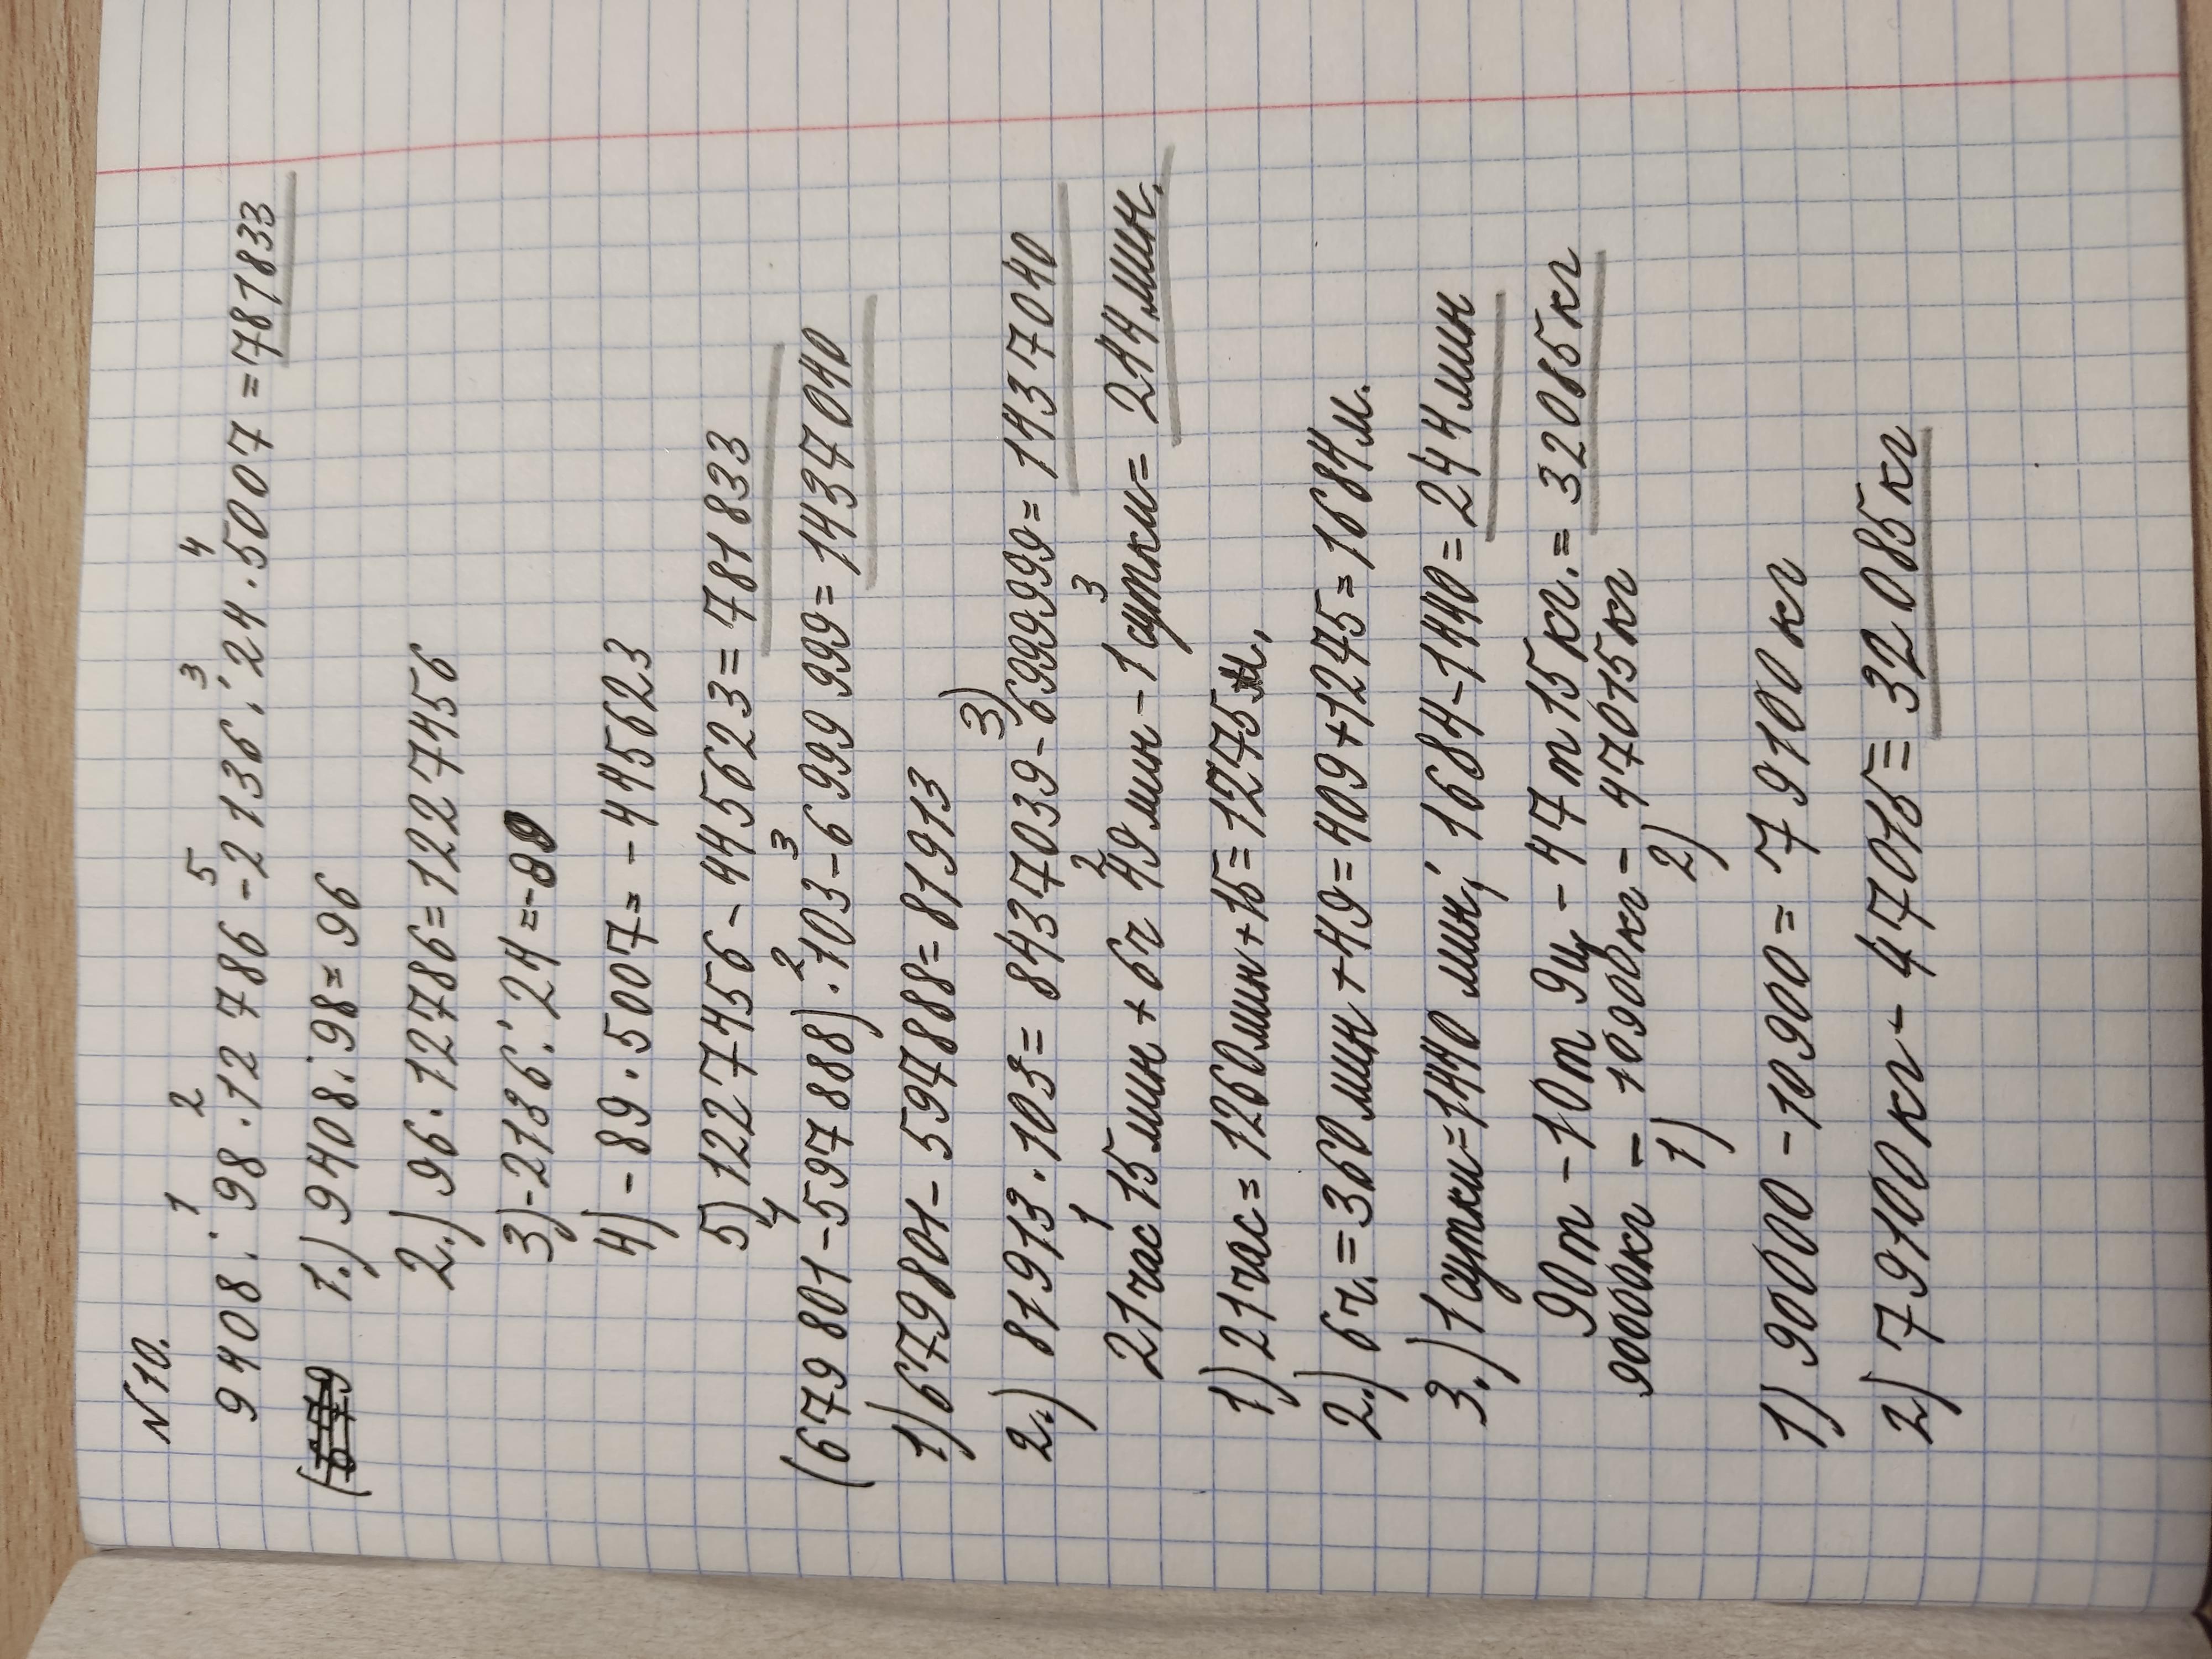 N10.
1 2 5 3 4
9408 : 98 · 12 786 - 2136 : 24 · 5007 = 781833
1.) 9408 : 98 = 96
2.) 96 · 12786 = 1227456
3) -2136 : 24 = -89
4) - 89 · 5007 = - 445623
5) 1227456 - 445623 = 781 833
1 2 3
(679 801 - 597 888) · 103 - 6 999 999 = 1437 040
1) 679801 - 597888 = 81913
3)
2.) 81913 · 103 = 8437039 - 6999999 = 1437040
1 2 3
21 час 15 мин + 6ч 49 мин - 1 сутки = 244 мин.
1) 21 час = 1260 мин + 15 = 1275 м.
2.) 6ч. = 360 мин + 49 = 409 + 1275 = 1684 м.
3.) 1 сутки = 1440 мин; 1684 - 1440 = 244 мин
90т - 10т 9ц - 47т 15 кг. = 32085 кг
90000кг - 10900кг - 47015кг
1) 2)
1) 90000 - 10900 = 79100 кг
2) 79100 кг - 47015 = 32 085 кг